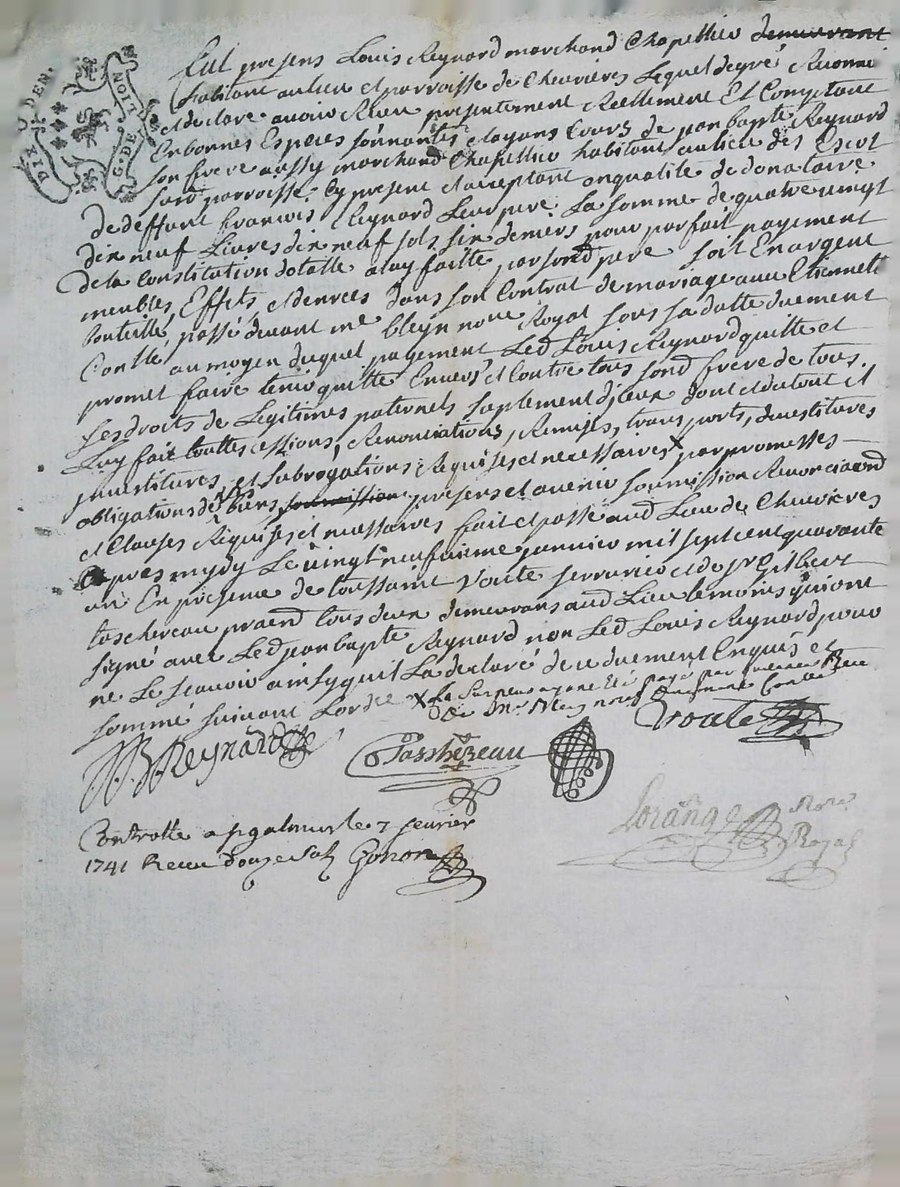 DIX DEN.
G. DE LION
Fut present Louis Reynard marchand Chapellier demeurant
habitant au lieu et parroisse de Chevrières Lequel de gré a Reconnu
et declare avoir Receu presentement Reellement Et Comptant
En bonnes Especes sonnantes et ayans Cours de jean bapte Reynard
son frere aussy marchand Chapellier habitant au lieu des
parroisse Cy present et acceptant en qualité de donataire
de deffunt francois Reynard Leur pere La somme de quatre vingt
dix neuf Livres dix neuf sols six deniers pour parfait payement
de la Constitution dotalle a luy faitte par sond pere soit En argent
meubles, Effets et denrées dans son Contrat de mariage avec Etiennette
passé devant me Bleyn nore Royal sous sa datte duement
au moyen duquel payement Led Louis Reynard quitte et
promet faire tenir quitte Envers et Contre tous sond frere de tous
Les droits de Legitimes paternels suplement d'jceux dont et du tout il
Luy fait touttes cessions, Renonciations, Remises, transports, devestitures
jnvestitures, et Subrogations Requises et necessaires x par promesses
obligations de biens soumission presens et avenir soumission Renonciaond
et Clauses Requises et necessaires fait et passé aud Lieu de Chevrières
apres mydy Le vingt neufvieme janvier mil sept cent quarante
un En presence de toussaint Voute serrurier et de sr Gilbert
taschereau praend tous deux demeurans aud Lieu temoins qui ont
signé avec Led jean bapte Reynard non Led Louis Reynard pour
ne Le scavoir ainsy quil La declaré de ce duement Enquis et
sommé suivant Lordce x La Surpense ayant Eté payé par
De Me Bleyn nore
JB Reynard
Tasshereau
Voute
Lorange Nore
Royal
Controllé a st galmier le 7 fevrier
1741 Receu douze sols Gonon